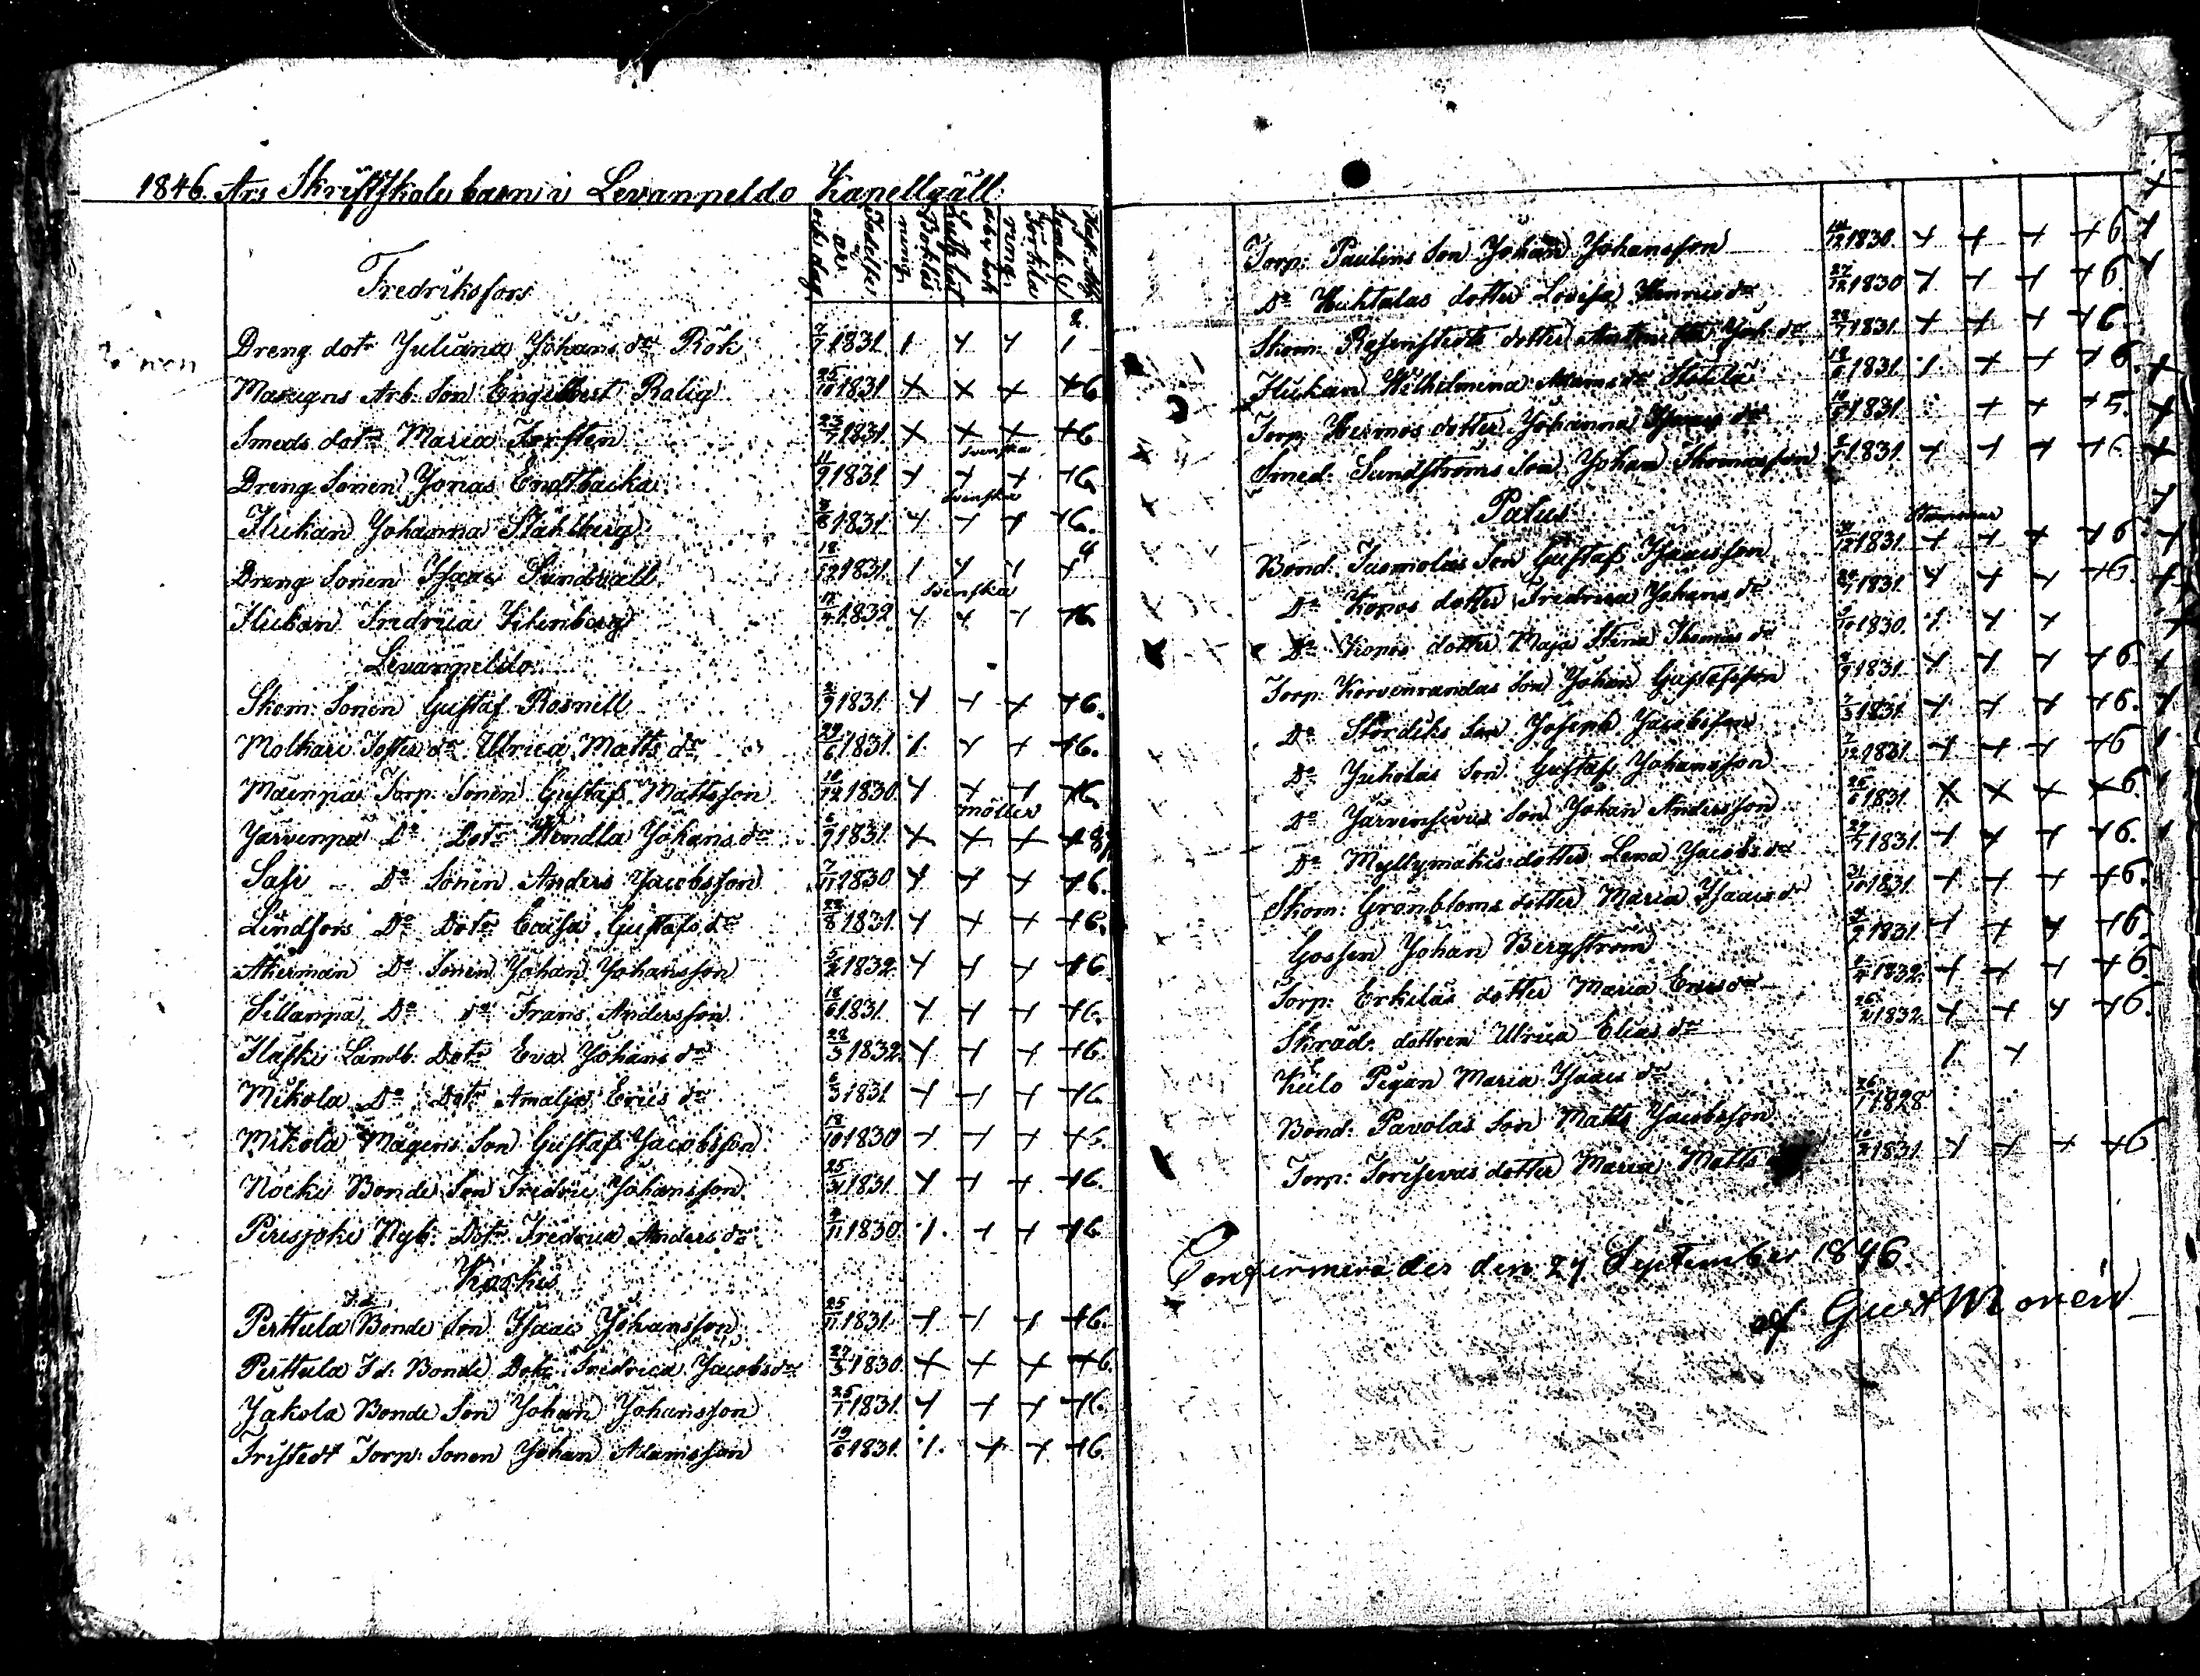 1846. Års Skriftskole barn i Levanpeldo Kapellgäll:
Födelse år och dag
Fredriksfors
2.
Dreng dotr Juliana Johans dr Rök 7/7 1831. 1 + + 1
Masugns Arb: Son Engelbert Rolig 25/10 1831 + + + +6
Smeds dotr Maria Forsten 23/7 1831. + + + +6
Svenska
Dreng Sonen Jonas Endtbacka 11/9 1831 + + + +6
Svenska
Flickan Johanna Ståhlberg 1831. + + + +6.
4
Dreng Sonen Isaac Sundvall 18/12 1831. 1 + 1 +
Svenska
Flickan Fredrica 17/4 1832 + + + +6
Levanpeldo:
Skom: Sonen Gustaf Rosnell 2/9 1831. + + + +6.
Molkari dr Ulrica Matts dr 29/6 1831. 1. + + +6.
Mäenpää Torp: Sonen Gustaf Mattsson 10/12 1830. + + + +6.
möller
Järvenpä Do Dotr Wendla Johans dr 6/9 1831. + + + +
Sasi Do Sonen Anders Jacobsson 7/11 1830 + + + +6.
Lindfors Do Dotr Caisa Gustafs dr 22/8 1831. + + + +6.
Åkerman Do Sonen Johan Johansson 5/2 1832. + + + +6
Sillanpä Do do Frans Andersson 18/6 1831. + + + +6.
Flaski Landb: Dotr Eva Johans dr 28/3 1832. + + + +6.
Mikola Do Dotr Amalja Erics dr 6/3 1831. + + + +6
Mikola Mågens Son Gustaf Jacobsson 18/10 1830 + + + +6.
Nocki Bonde Son Fredric Johansson 25/ 1831. + + + +6.
Perisjoki Nyb: Dotr Fredrica Anders dr 4/11 1830. 1. + + +6
Karkis
F.d.
Perttula Bonde Son Isaac Johansson 25/11 1831. + + + +6.
Perttula F.d: Bonde Dotr Fredrica Jacobs dr 27/3 1830. + + + +6
Jakola Bonde Son Johan Johansson 25/7 1831. + + + +6.
Fristedt Torp: Sonen Johan Adamsson 19/6 1831. 1. + + +6
Torp: Paulins Son Johan Johansson /12 1830. + + + +6
Do Huhtalas dotter Lovisa Henrics dr 27/12 1830 + + + +6.
Skom: dotter Joh: dr 28/7 1831. + + + +6.
Flickan Wilhelmina Adams dr 18/6 1831. 1. + + +6.
Torp: Hermos dotter Johanna Isaacs dr 1831. + + +5.
Smed: Sundströms Son Johan Thomasson 1831. + + + +6.
Palus
Bond: Tuomolas Son Gustaf Isaacsson /12 1831. + + + +6.
Do Kopos dotter Fredrica Johans dr 1831. + + + +6.
Do Kopos dotter Maja Stina Thomas dr /10 1830. 1. + +
Torp: Korvenrandas Son Johan Gustafsson /9 1831. + + + +6.
Do Stordiks Son Joseph Jacobsson /3 1831. + + + +6.
Do Juholas Son Gustaf Johansson 7/12 1831. + + + +6
Do Järvensivus Son Johan Andersson 26/6 1831. + + + +6.
Do Myllymäkis dotter Lena Jacobs dr 29/7 1831. + + + +6.
Skom: Grönbloms dotter Maria Isaacs dr 31/10 1831. + + + +6.
Gossen Johan Bergström /9 1831. + + + +6.
Torp: Erkiläs dotter Maria Erics dr 1832. + + + +6.
Skräd: dottren Ulrica Elias dr 26/2 1832. + + + +6.
Keilo Pigan Maria Isaacs dr 1 +
Bond: Pavolas Son Matts Jacobsson 26/1 1828
Torp: Torisevas dotter Maria Matts 1831 + + + +6.
Confirmerades den 27 September 1846.
af Gust Monéen